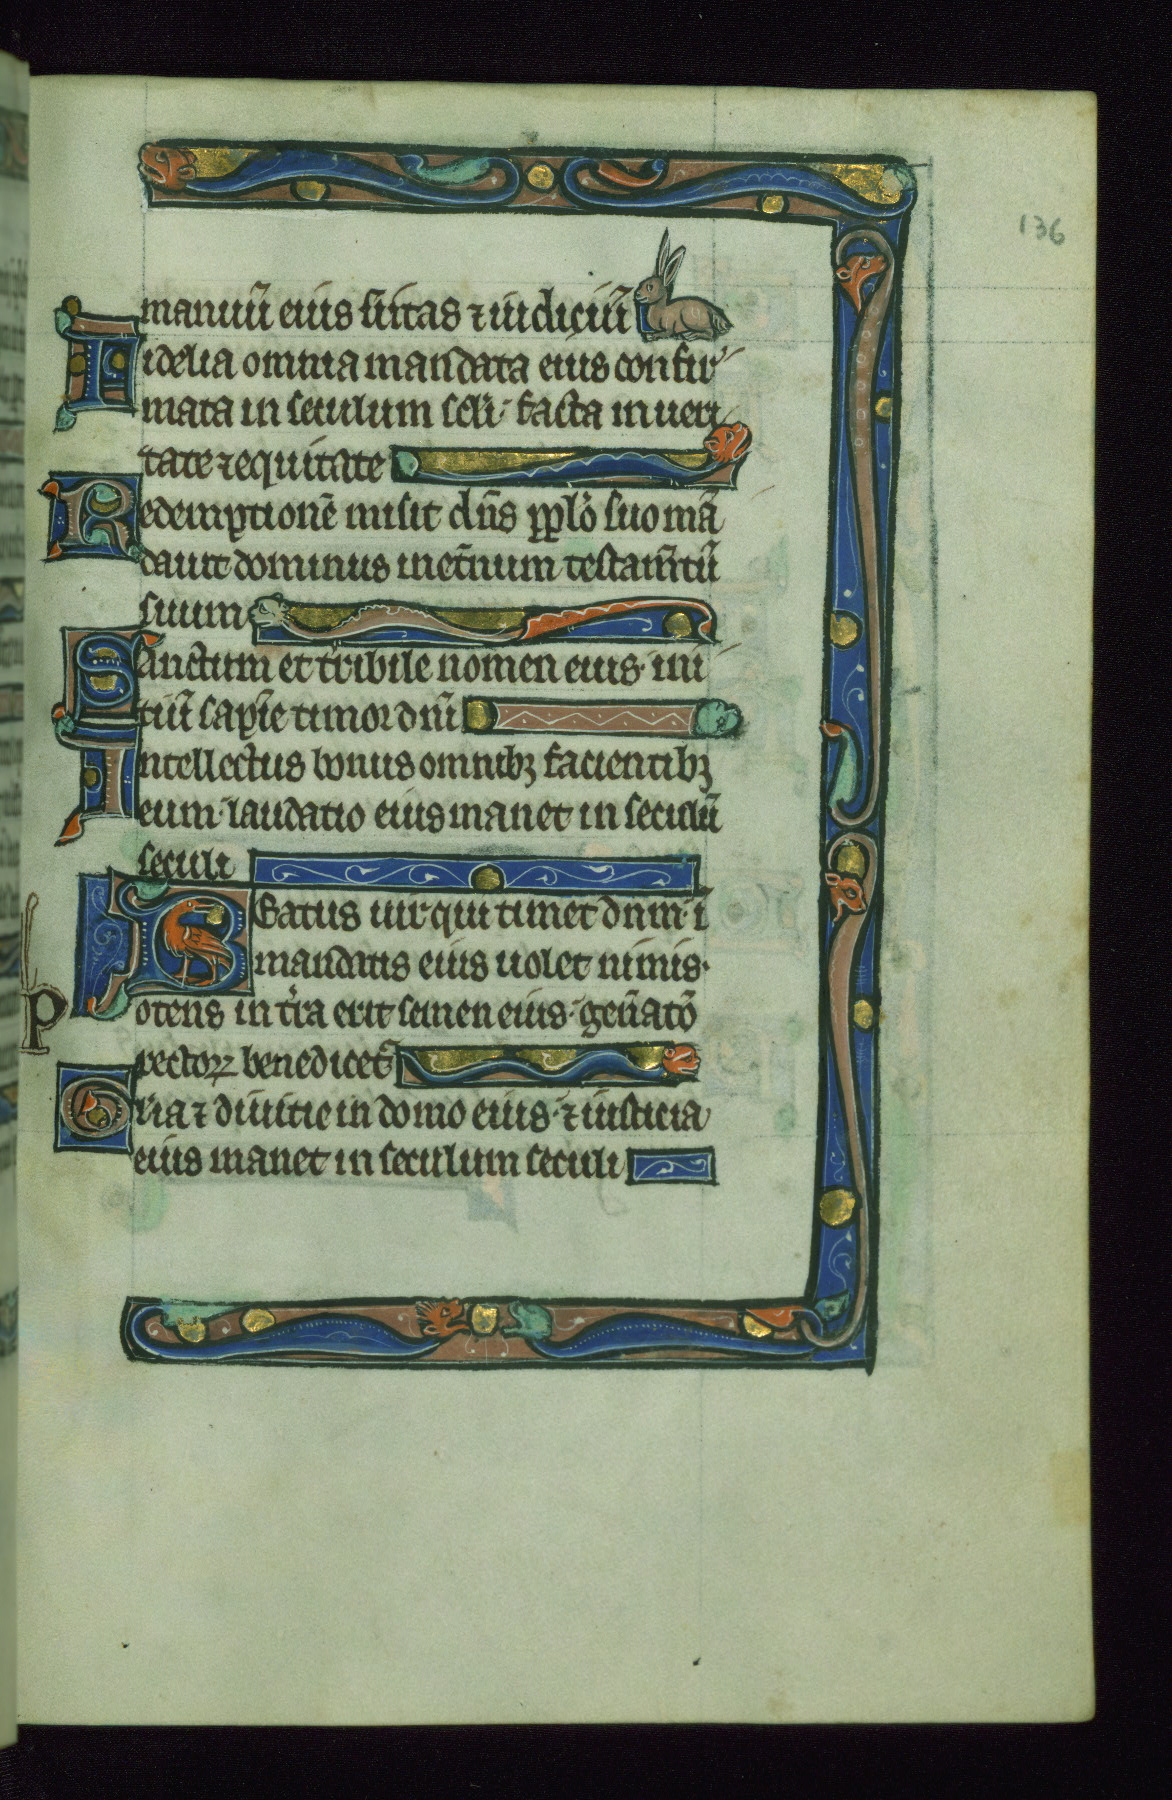 136
manuū eius ūitas ⁊ iudiciū
Fidelia omnia mandata eius confir
mata in seculum scl̄i· facta in ueri
tate ⁊ equitate
Redemptionē misit dn̄s pp̄lo suo mā
dauit dominus in et̄num testam̄tū
suum
Sanctum et t̄ribile nomen eius· ini
tiū sap̄ie timor dn̄i
Intellectus bonus omnibꝫ facientibꝫ
eum· laudatio eius manet in seculū
seculi
Beatus uir qui timet dnm· ī
mandatis eius uolet nimis·
Potens in t̄ra erit semen eius· gen̄atō
rectoꝝ benedicet᷑
Gl̄ia ⁊ diuitie in domo eius· ⁊ iusticia
eius manet in seculum seculi